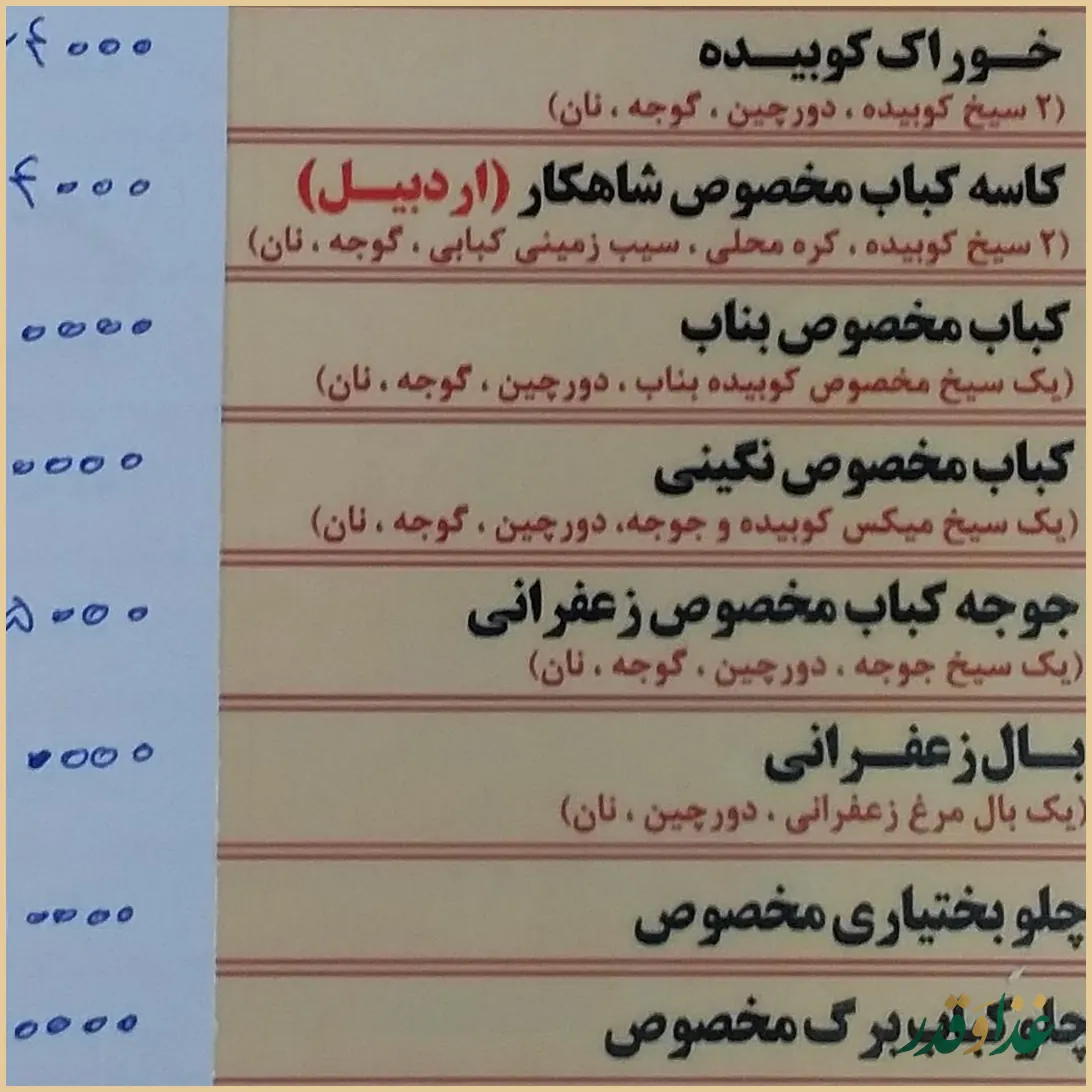 خوراک کوبیده
(۲ سیخ کوبیده ، دورچین ، گوجه ، نان)
۴۰۰۰
کاسه کباب مخصوص شاهکار (اردبیل)
(۲ سیخ کوبیده ، کره محلی ، سیب زمینی کبابی ، گوجه ، نان)
۴۰۰۰
کباب مخصوص بناب
(یک سیخ مخصوص کوبیده بناب ، دورچین ، گوجه ، نان)
۰۰۰۰
کباب مخصوص نگینی
(یک سیخ میکس کوبیده و جوجه، دورچین ، گوجه ، نان)
۰۰۰۰
جوجه کباب مخصوص زعفرانی
(یک سیخ جوجه ، دورچین ، گوجه ، نان)
۵۰۰۰
بال زعفرانی
(یک بال مرغ زعفرانی ، دورچین ، نان)
۰۰۰۰
چلو بختیاری مخصوص
۰۰۰۰
چلو کباب برگ مخصوص
۰۰۰۰
غذا و قدر